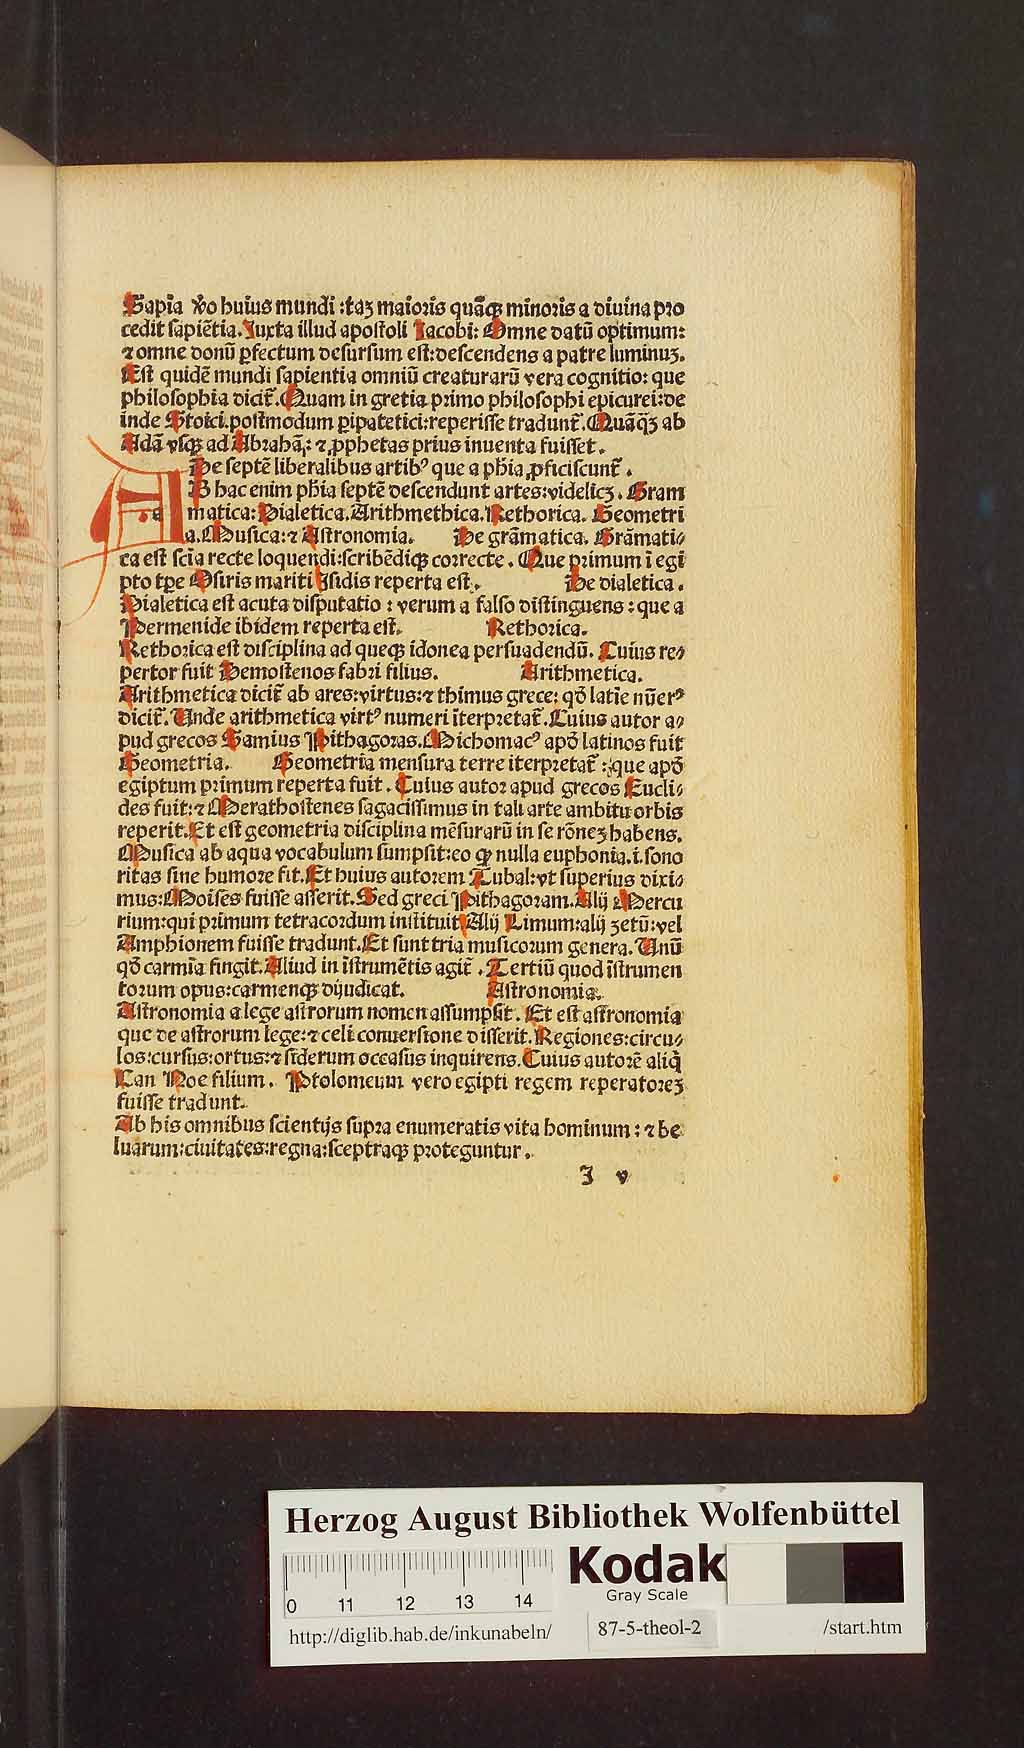 Sapīa v̄o huīus mundi :taʒ maioris quāqꝫ minoris a diuina pro
cedit sapiētia. Iuxta illud apostoli Iacobi: Omne datū optimum:
⁊ omne donū ꝑfectum desursum est:descendens a patre luminuʒ.
Est quidē mundi sapientia omniū creaturarū vera cognitio: que
philosophia dicit̄. Quam in gretia primo philosophi epicurei:de
inde Stoici.postmodum ꝑipatetici:reperisse tradunt̄. Quāqʒ ab
Adā vsqꝫ ad Abrahā: ⁊ ꝓphetas prius inuenta fuisset.
De septē liberalibus artibꝰ que a ph̄ia ꝓficiscunt̄.
A B hac enim ph̄ia septē descendunt artes:videlicʒ. Gram
matica: Dialetica. Arithmethica. Rethorica. Geometri
a. Musica: ⁊ Astronomia. De grāmatica. Grāmati⸗
ca est scīa recte loquendi:scribēdiqꝫ correcte. Que primum ī egi
pto tꝑe Osiris mariti Isidis reperta est. De dialetica.
Dialetica est acuta disputatio : verum a falso distinguens : que a
Permenide ibidem reperta est. Rethorica.
Rethorica est disciplina ad queqꝫ idonea persuadendū. Cuius re⸗
pertor fuit Demostenos fabri filius. Arithmetica.
Arithmetica dicit̄ ab ares:virtus:⁊ thimus grece: qđ latīe nūerꝰ
dicit̄. Unde arithmetica virtꝰ numeri īterpretat̄. Cuius autor a⸗
pud grecos Samius Pithagoras. Nichomacꝰ apđ latinos fuit
Geometria. Geometria mensura terre iterpretat̄ : que apđ
egiptum primum reperta fuit. Cuius autor apud grecos Eucli⸗
des fuit:⁊ Merathostenes sagacissimus in tali arte ambitu orbis
reperit. Et est geometria disciplina mēsurarū in se rōneʒ habens.
Musica ab aqua vocabulum sumpsit:eo ꝙ nulla euphonia.i.sono
ritas sine humore fit. Et huius autorem Tubal:vt superius dixi⸗
mus: Moises fuisse asserit. Sed greci Pithagoram. Alij Mercu
rium:qui primum tetracordum instituit. Alij Limum:alij zetū:vel
Amphionem fuisse tradunt. Et sunt tria musicorum genera. Unū
qđ carmīa fingit. Aliud in īstrumētis agit̄. Tertiū quod īstrumen
torum opus:carmenqꝫ dijudicat. Astronomia.
Astronomia a lege astrorum nomen assumpsit. Et est astronomia
que de astrorum lege:⁊ celi conuersione disserit. Regiones:circu⸗
los:cursus:ortus:⁊ siderum occasus inquirens. Cuius autorē aliq̄
Can Noe filium. Ptolomeum vero egipti regem reperatoreʒ
fuisse tradunt.
Ab his omnibus scientijs supra enumeratis vita hominum: ⁊ be
luarum:ciuitates:regna:sceptraqꝫ proteguntur.
I v
Herzog August Bibliothek Wolfenbüttel
Kodak
Gray Scale
0 11 12 13 14
http://diglib.hab.de/inkunabeln/ 87-5-theol-2 /start.htm